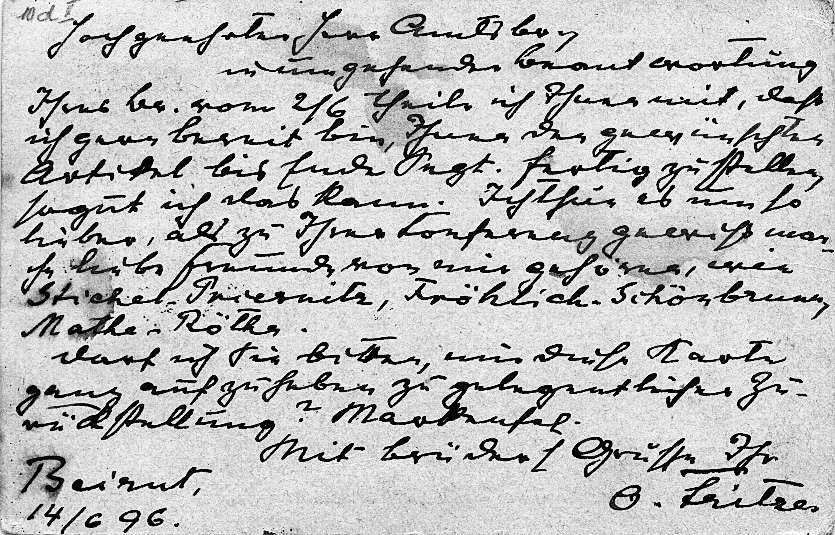 10d I
Hochgeehrter Herr Amtsbr.,
in umgehender Beantwortung
Ihres br. vom 2/6 theile ich Ihnen mit, daß
ich gern bereit bin, Ihnen den gewünschten
Artikel bis Ende Sept. fertig zu stellen,
so gut ich das kann. Ich thue es um so
lieber, als zu Ihrer Konferenz gewiß man-
che liebe Freunde von mir gehören, wie
Stichel-Priesnitz, Fröhlich-Schönbrunn,
Mathe-Rötha.
Darf ich Sie bitten, mir diese Karte
ganz aufzuheben zu gelegentlicher Zu-
rückstellung?
Mit brüderl. Gruße Ihr
Beirut,
14/6 96.